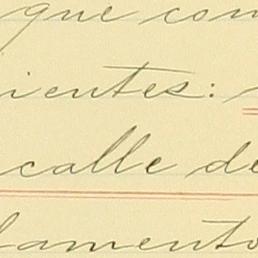 que con
ientes:
calle de
lamento